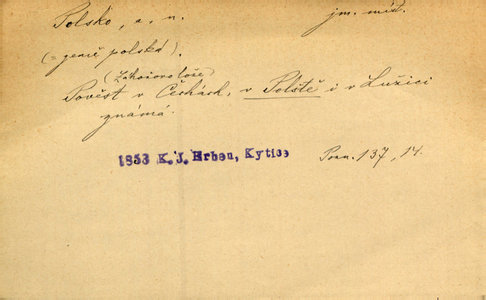 Polsko, a, n. jm. míst.
(= země polská).
(Záhořovo lože)
Pověst v Čechách, v Polště i v Lužici
známá.
1853 K. J. Erben, Kytice Pozn. 137, 14.